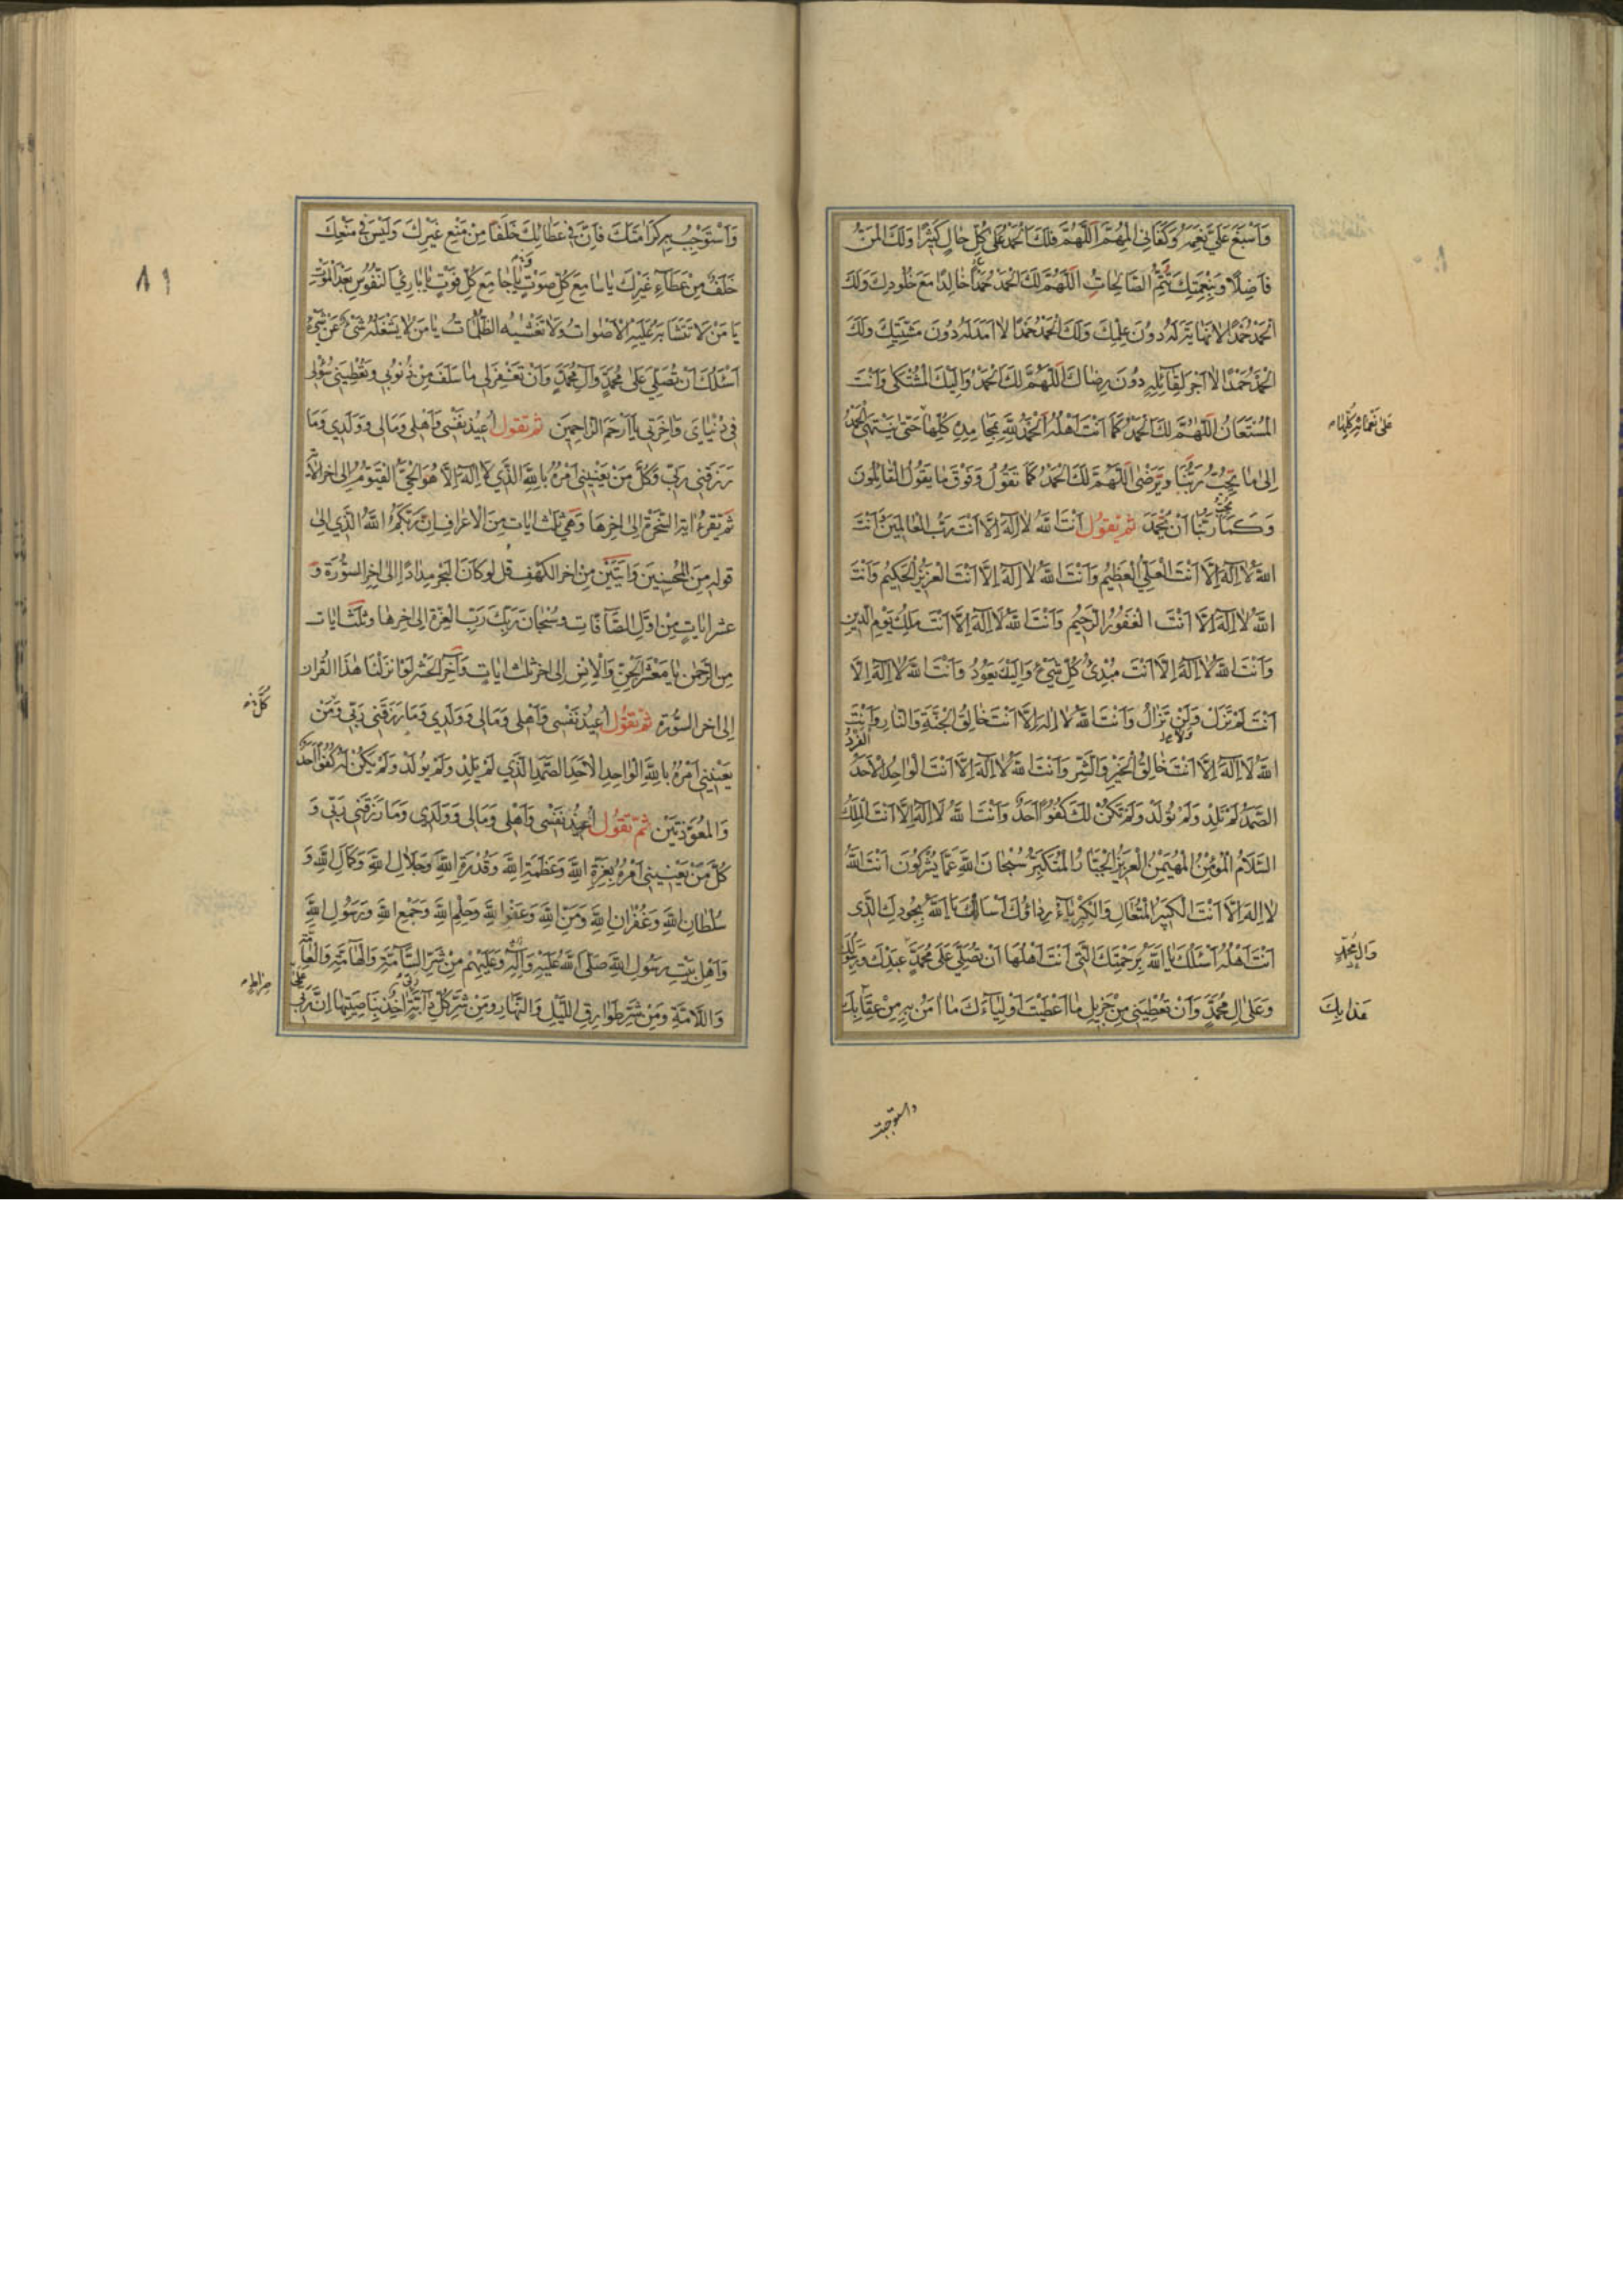 وَاَسْبَغَ عَلَيَّ نِعَمَهُ وَكَفَانِي الْمُهِمَّ اَللّٰهُمَّ فَلَكَ الْحَمْدُ عَلٰى كُلِّ حَالٍ كَثِيرًا وَلَكَ الْمَنُّ
فَاضِلًا وَبِنِعْمَتِكَ تَتِمُّ الصَّالِحَاتُ اَللّٰهُمَّ لَكَ الْحَمْدُ حَمْدًا خَالِدًا مَعَ خُلُودِكَ وَلَكَ
الْحَمْدُ حَمْدًا لَا نِهَايَةَ لَهُ دُونَ عِلْمِكَ وَلَكَ الْحَمْدُ حَمْدًا لَا اَمَدَ لَهُ دُونَ مَشِيَّتِكَ وَلَكَ
الْحَمْدُ حَمْدًا لَا اَجْرَ لِقَائِلِهِ دُونَ رِضَاكَ اَللّٰهُمَّ لَكَ الْحَمْدُ وَاِلَيْكَ الْمُشْتَكٰى وَاَنْتَ
الْمُسْتَعَانُ اَللّٰهُمَّ لَكَ الْحَمْدُ كَمَا اَنْتَ اَهْلُهُ اَلْحَمْدُ لِلّٰهِ بِمَحَامِدِهِ كُلِّهَا حَتّٰى يَنْتَهِيَ الْحَمْدُ
عَلٰى نَعْمَائِهِ كُلِّهَا
اِلٰى مَا يُحِبُّ رَبُّنَا وَيَرْضٰى اَللّٰهُمَّ لَكَ الْحَمْدُ كَمَا تَقُولُ وَفَوْقَ مَا يَقُولُ الْقَائِلُونَ
وَكَمَا يُحِبُّ رَبُّنَا اَنْ يُحْمَدَ ثُمَّ تَقُولُ اَنْتَ اللّٰهُ لَا اِلٰهَ اِلَّا اَنْتَ رَبُّ الْعَالَمِينَ وَاَنْتَ
اللّٰهُ لَا اِلٰهَ اِلَّا اَنْتَ الْعَلِيُّ الْعَظِيمُ وَاَنْتَ اللّٰهُ لَا اِلٰهَ اِلَّا اَنْتَ الْعَزِيزُ الْحَكِيمُ وَاَنْتَ
اللّٰهُ لَا اِلٰهَ اِلَّا اَنْتَ الْغَفُورُ الرَّحِيمُ وَاَنْتَ اللّٰهُ لَا اِلٰهَ اِلَّا اَنْتَ مَلِكُ يَوْمِ الدِّينِ
وَاَنْتَ اللّٰهُ لَا اِلٰهَ اِلَّا اَنْتَ مُبْدِئُ كُلِّ شَيْءٍ وَاِلَيْكَ يَعُودُ وَاَنْتَ اللّٰهُ لَا اِلٰهَ اِلَّا
اَنْتَ لَمْ تَزَلْ وَلَنْ تَزَالُ وَاَنْتَ اللّٰهُ لَا اِلٰهَ اِلَّا اَنْتَ خَالِقُ الْجَنَّةِ وَالنَّارِ وَاَنْتَ
اللّٰهُ لَا اِلٰهَ اِلَّا اَنْتَ خَالِقُ الْخَيْرِ وَالشَّرِّ وَاَنْتَ اللّٰهُ لَا اِلٰهَ اِلَّا اَنْتَ الْوَاحِدُ الْاَحَدُ الْفَرْدُ
الصَّمَدُ لَمْ تَلِدْ وَلَمْ تُولَدْ وَلَمْ تَكُنْ لَكَ كُفُوًا اَحَدٌ وَاَنْتَ اللّٰهُ لَا اِلٰهَ اِلَّا اَنْتَ الْمَلِكُ
السَّلَامُ الْمُؤْمِنُ الْمُهَيْمِنُ الْعَزِيزُ الْجَبَّارُ الْمُتَكَبِّرُ سُبْحَانَ اللّٰهِ عَمَّا يُشْرِكُونَ اَنْتَ اللّٰهُ
لَا اِلٰهَ اِلَّا اَنْتَ الْكَبِيرُ الْمُتَعَالِ وَالْكِبْرِيَاءُ رِدَاؤُكَ اَسْأَلُكَ يَا اَللّٰهُ بِجُودِكَ الَّذِي
اَنْتَ اَهْلُهُ اَسْئَلُكَ يَا اَللّٰهُ بِرَحْمَتِكَ الَّتِي اَنْتَ اَهْلُهَا اَنْ تُصَلِّيَ عَلٰى مُحَمَّدٍ عَبْدِكَ وَرَسُولِكَ
وَآلِ مُحَمَّدٍ
وَعَلٰى اٰلِ مُحَمَّدٍ وَاَنْ تُعْطِيَنِي مِنْ جَزِيلِ مَا اَعْطَيْتَ اَوْلِيَاءَكَ مَا اٰمَنُ بِهِ مِنْ عِقَابِكَ
عَذَابِكَ
واستوجب
٨٩
وَاَسْتَوْجِبُ بِهِ كَرَامَتَكَ فَاِنَّ فِي عَطَائِكَ خَلَفًا مِنْ مَنْعِ غَيْرِكَ وَلَيْسَ فِي مَنْعِكَ
خَلَفٌ مِنْ عَطَاءِ غَيْرِكَ يَا سَامِعَ كُلِّ صَوْتٍ يَا جَامِعَ كُلِّ فَوْتٍ يَا بَارِئَ النُّفُوسِ بَعْدَ الْمَوْتِ
يَا مَنْ لَا تَتَشَابَهُ عَلَيْهِ الْاَصْوَاتُ وَلَا تَغْشٰيهُ الظُّلُمَاتُ يَا مَنْ لَا يَشْغَلُهُ شَيْءٌ عَنْ شَيْءٍ
اَسْئَلُكَ اَنْ تُصَلِّيَ عَلٰى مُحَمَّدٍ وَآلِ مُحَمَّدٍ وَاَنْ تَغْفِرَ لِي مَا سَلَفَ مِنْ ذُنُوبِي وَتُعْطِيَنِي سُؤْلِي
فِي دُنْيَايَ وَاٰخِرَتِي يَا اَرْحَمَ الرَّاحِمِينَ ثُمَّ تَقُولُ اُعِيذُ نَفْسِي وَاَهْلِي وَمَالِي وَوَلَدِي وَمَا
رَزَقَنِي رَبِّي وَكُلَّ مَنْ يَعْنِينِي اَمْرُهُ بِاللّٰهِ الَّذِي لَا اِلٰهَ اِلَّا هُوَ الْحَيُّ الْقَيُّومُ اِلٰى اٰخِرِ الْاٰيَةِ
ثُمَّ تَقْرَءُ اٰيَةَ السُّخْرَةِ اِلٰى اٰخِرِهَا وَهِيَ ثَلٰثُ اٰيَاتٍ مِنَ الْاَعْرَافِ اِنَّ رَبَّكُمُ اللّٰهُ الَّذِي اِلٰى
قَوْلِهِ مِنَ الْمُحْسِنِينَ وَاٰيَتَيْنِ مِنْ اٰخِرِ الْكَهْفِ قُلْ لَوْ كَانَ الْبَحْرُ مِدَادًا اِلٰى اٰخِرِ السُّورَةِ وَ
عَشْرَ اٰيَاتٍ مِنْ اَوَّلِ الصَّافَّاتِ وَسُبْحَانَ رَبِّكَ رَبِّ الْعِزَّةِ اِلٰى اٰخِرِهَا وَثَلٰثَ اٰيَاتٍ
مِنَ الرَّحْمٰنِ يَا مَعْشَرَ الْجِنِّ وَالْاِنْسِ اِلٰى اٰخِرِ ثَلٰثِ اٰيَاتٍ وَاٰخِرَ الْحَشْرِ لَوْ اَنْزَلْنَا هٰذَا الْقُرْاٰنَ
اِلٰى اٰخِرِ السُّورَةِ ثُمَّ تَقُولُ اُعِيذُ نَفْسِي وَاَهْلِي وَمَالِي وَوَلَدِي وَمَا رَزَقَنِي رَبِّي وَمَنْ
كُلَّ
يَعْنِينِي اَمْرُهُ بِاللّٰهِ الْوَاحِدِ الْاَحَدِ الصَّمَدِ الَّذِي لَمْ يَلِدْ وَلَمْ يُولَدْ وَلَمْ يَكُنْ لَهُ كُفُوًا اَحَدٌ
وَالْمُعَوِّذَتَيْنِ ثُمَّ تَقُولُ اُعِيذُ نَفْسِي وَاَهْلِي وَمَالِي وَوَلَدِي وَمَا رَزَقَنِي رَبِّي وَ
كُلَّ مَنْ يَعْنِينِي اَمْرُهُ بِعِزَّةِ اللّٰهِ وَعَظَمَةِ اللّٰهِ وَقُدْرَةِ اللّٰهِ وَجَلَالِ اللّٰهِ وَكَمَالِ اللّٰهِ وَ
سُلْطَانِ اللّٰهِ وَغُفْرَانِ اللّٰهِ وَمَنِّ اللّٰهِ وَعَفْوِ اللّٰهِ وَحِلْمِ اللّٰهِ وَجَمْعِ اللّٰهِ وَرَسُولِ اللّٰهِ
وَاَهْلِ بَيْتِ رَسُولِ اللّٰهِ صَلَّى اللّٰهُ عَلَيْهِ وَآلِهِ وَعَلَيْهِمْ مِنْ شَرِّ السَّامَّةِ وَالْهَامَّةِ وَالْعَامَّةِ
وَاللَّامَّةِ وَمِنْ شَرِّ طَوَارِقِ اللَّيْلِ وَالنَّهَارِ وَمِنْ شَرِّ كُلِّ دَابَّةٍ رَبِّي اٰخِذٌ بِنَاصِيَتِهَا اِنَّ رَبِّي عَلٰى
صِرَاطٍ